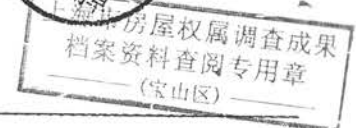 上海市房屋权属调查成果
档案资料查阅专用章
(宝山区)